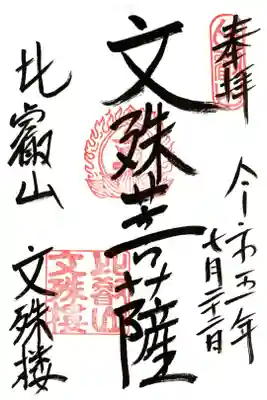 奉拝
令和五年
七月
文殊菩薩
比叡山
文殊楼
比叡山
文殊楼